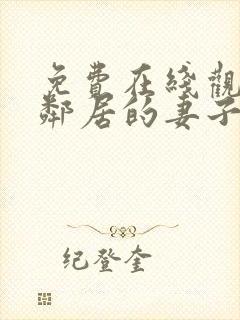 免費在綫觀
鄰居的妻子
纪登奎